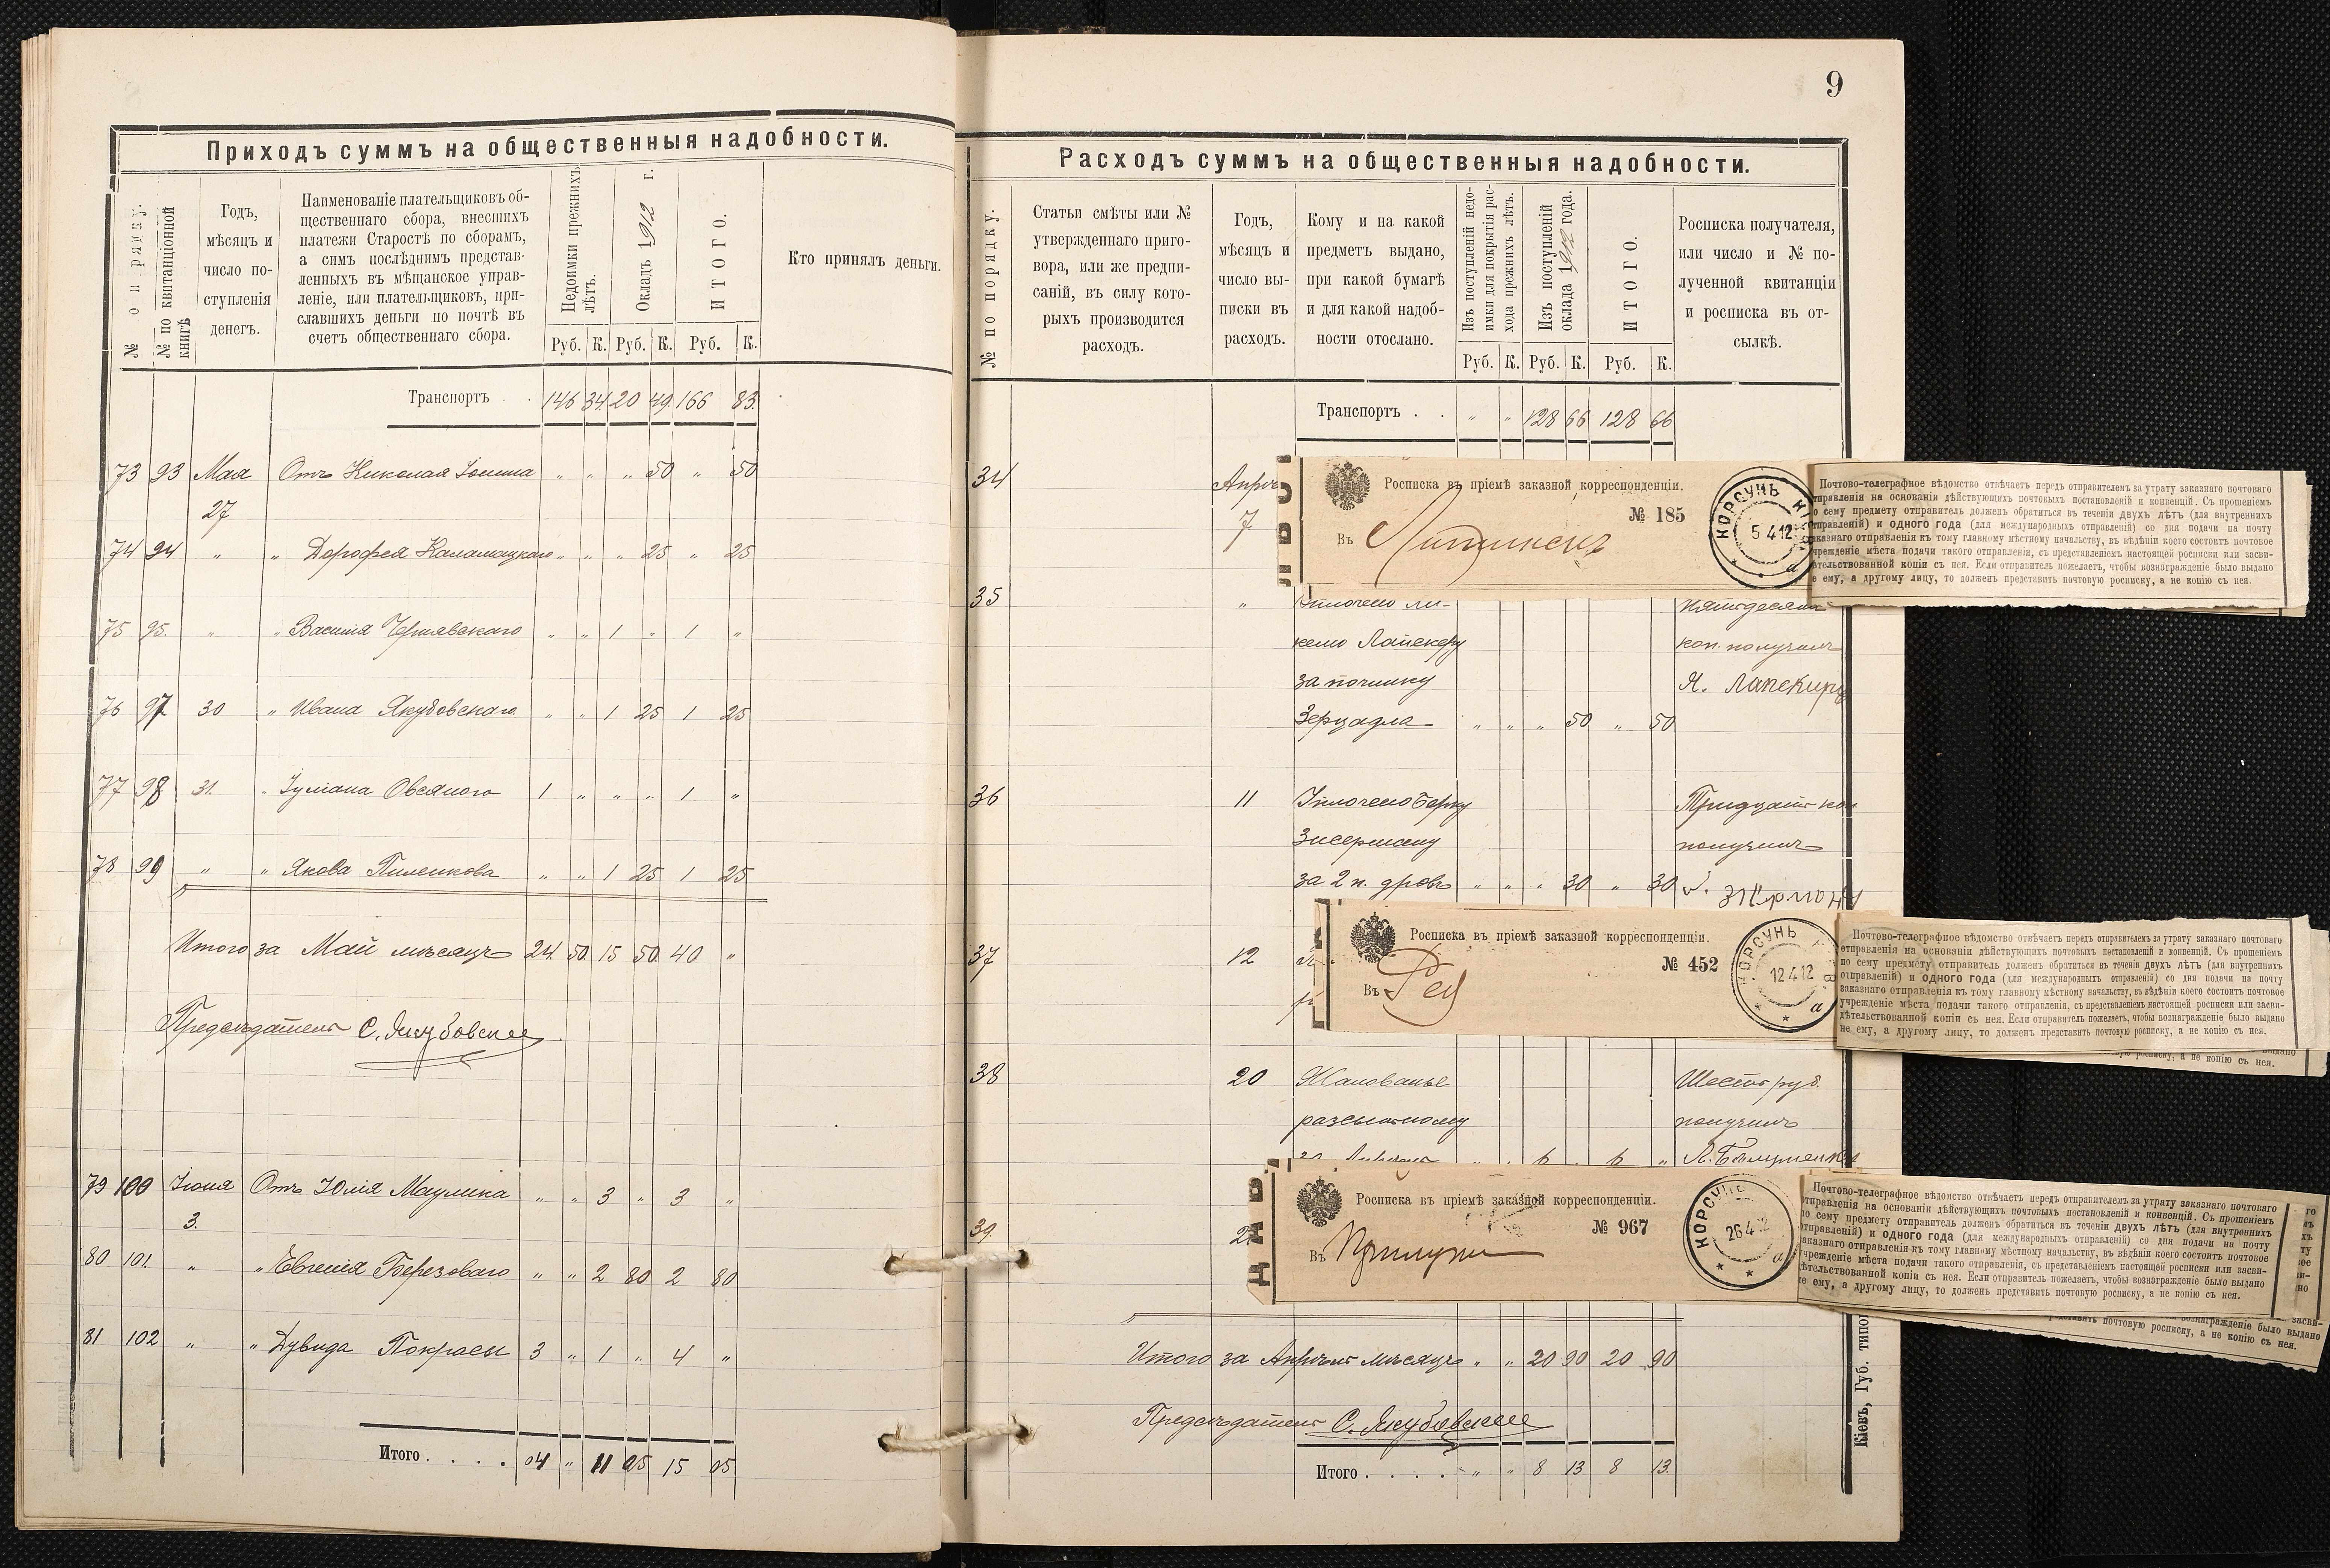 Приходъ суммъ на общественныя надобности.
№ по порядку.
№ по квитанціонной книгѣ
Годъ,
мѣсяцъ и
число по-
ступленія
денегъ.
Наименованіе плательщиковъ об-
щественнаго сбора, внесшихъ
платежи Старостѣ по сборамъ,
а симъ послѣднимъ представ-
ленныхъ въ мѣщанское управ-
леніе, или плательщиковъ, при-
славшихъ деньги по почтѣ въ
счетъ общественнаго сбора.
Недоимки прежнихъ
лѣтъ.
Окладъ 1912 г.
ИТОГО.
Руб. К. Руб. К. Руб. К.
Кто принялъ деньги.
Транспортъ . . 146 34 20 49 166 83.
73 93 Мая Отъ Николая " " " 50 " 50
27
74 94 " " Дорофея " " " 25 " 25
75 95. " " Василія Чернявскаго " " 1 " 1 "
76 97 30 " Ивана Якубовскаго " " 1 25 1 25
77 98 31. " Іуліана Овсяного 1 " " " 1 "
78 99 " " Якова Пиленкова " " 1 25 1 25
Итого за Май мѣсяцъ 24. 50. 15 50. 40 "
Предсѣдатель С. Якубовскій
79 100 Іюня Отъ Юлія Маулика " " 3 " 3 "
3.
80 101. " " Евгенія Березоваго " " 2 80 2 80
81 102 " " Дувида Покрасы 3 " 1 " 4 "
Итого . . . . 04 " 11 05 15 05
9
Расходъ суммъ на общественныя надобности.
№ по порядку.
Статьи смѣты или №
утвержденнаго приго-
вора, или же предпи-
саній, въ силу кото-
рыхъ производится
расходъ.
Годъ,
мѣсяцъ и
число вы-
писки въ
расходъ.
Кому и на какой
предметъ выдано,
при какой бумагѣ
и для какой надоб-
ности отослано.
Изъ поступленій недо-
имки для покрытія рас-
хода прежнихъ лѣтъ.
Изъ поступленій
оклада 1912 года.
ИТОГО.
Руб. К. Руб. К. Руб. К.
Росписка получателя,
или число и № по-
лученной квитанціи
и росписка въ от-
сылкѣ.
Транспортъ . . " " 128 66 128 66
34 Апрѣ
7
Росписка въ пріемѣ заказной корреспонденціи.
№ 185
Въ
КОРСУНЬ КІЕВ
5 4 12
а
Почтово-телеграфное вѣдомство отвѣчаетъ передъ отправителемъ за утрату заказнаго почтоваго
отправленія на основаніи дѣйствующихъ почтовыхъ постановленій и конвенцій. Съ прошеніемъ
по сему предмету отправитель долженъ обратиться въ теченіи двухъ лѣтъ (для внутреннихъ
отправленій) и одного года (для международныхъ отправленій) со дня подачи на почту
заказнаго отправленія къ тому главному мѣстному начальству, въ вѣдѣніи коего состоитъ почтовое
учрежденіе мѣста подачи такого отправленія, съ представленіемъ настоящей росписки или засви-
дѣтельствованной копіи съ нея. Если отправитель пожелаетъ, чтобы вознагражденіе было выдано
не ему, а другому лицу, то долженъ представить почтовую росписку, а не копію съ нея.
35 " Уплочено пятьдесятъ
Лапскеру коп. получилъ
за починку Я. Лапскиръ
Зерцадла " " " 50 " 50
36 11 Уплочено Берку Тридцать коп
Зисерману получилъ
за 2 п. дровъ " " " 30 " 30
37 12
Росписка въ пріемѣ заказной корреспонденціи.
№ 452
Въ
КОРСУНЬ
12 4 12
а
Почтово-телеграфное вѣдомство отвѣчаетъ передъ отправителемъ за утрату заказнаго почтоваго
отправленія на основаніи дѣйствующихъ почтовыхъ постановленій и конвенцій. Съ прошеніемъ
по сему предмету отправитель долженъ обратиться въ теченіи двухъ лѣтъ (для внутреннихъ
отправленій) и одного года (для международныхъ отправленій) со дня подачи на почту
заказнаго отправленія къ тому главному мѣстному начальству, въ вѣдѣніи коего состоитъ почтовое
учрежденіе мѣста подачи такого отправленія, съ представленіемъ настоящей росписки или засви-
дѣтельствованной копіи съ нея. Если отправитель пожелаетъ, чтобы вознагражденіе было выдано
не ему, а другому лицу, то долженъ представить почтовую росписку, а не копію съ нея.
росписку, а не копію съ нея.
38 20 Жалованье Шесть руб.
разсыльному получилъ
за Апрѣль " " 6 " 6 "
39.
Росписка въ пріемѣ заказной корреспонденціи.
№ 967
Въ Прилуки
КОРСУНЬ
26 4 12
а
Почтово-телеграфное вѣдомство отвѣчаетъ передъ отправителемъ за утрату заказнаго почтоваго
отправленія на основаніи дѣйствующихъ почтовыхъ постановленій и конвенцій. Съ прошеніемъ
по сему предмету отправитель долженъ обратиться въ теченіи двухъ лѣтъ (для внутреннихъ
отправленій) и одного года (для международныхъ отправленій) со дня подачи на почту
заказнаго отправленія къ тому главному мѣстному начальству, въ вѣдѣніи коего состоитъ почтовое
учрежденіе мѣста подачи такого отправленія, съ представленіемъ настоящей росписки или засви-
дѣтельствованной копіи съ нея. Если отправитель пожелаетъ, чтобы вознагражденіе было выдано
не ему, а другому лицу, то долженъ представить почтовую росписку, а не копію съ нея.
вознагражденіе было выдано
почтовую росписку, а не копію съ нея.
Итого за Апрѣль мѣсяцъ " " 20 90 20 90
Предсѣдатель С. Якубовскій
Итого . . . . " " 8 13 8 13.
Кіевъ, Губ. типог